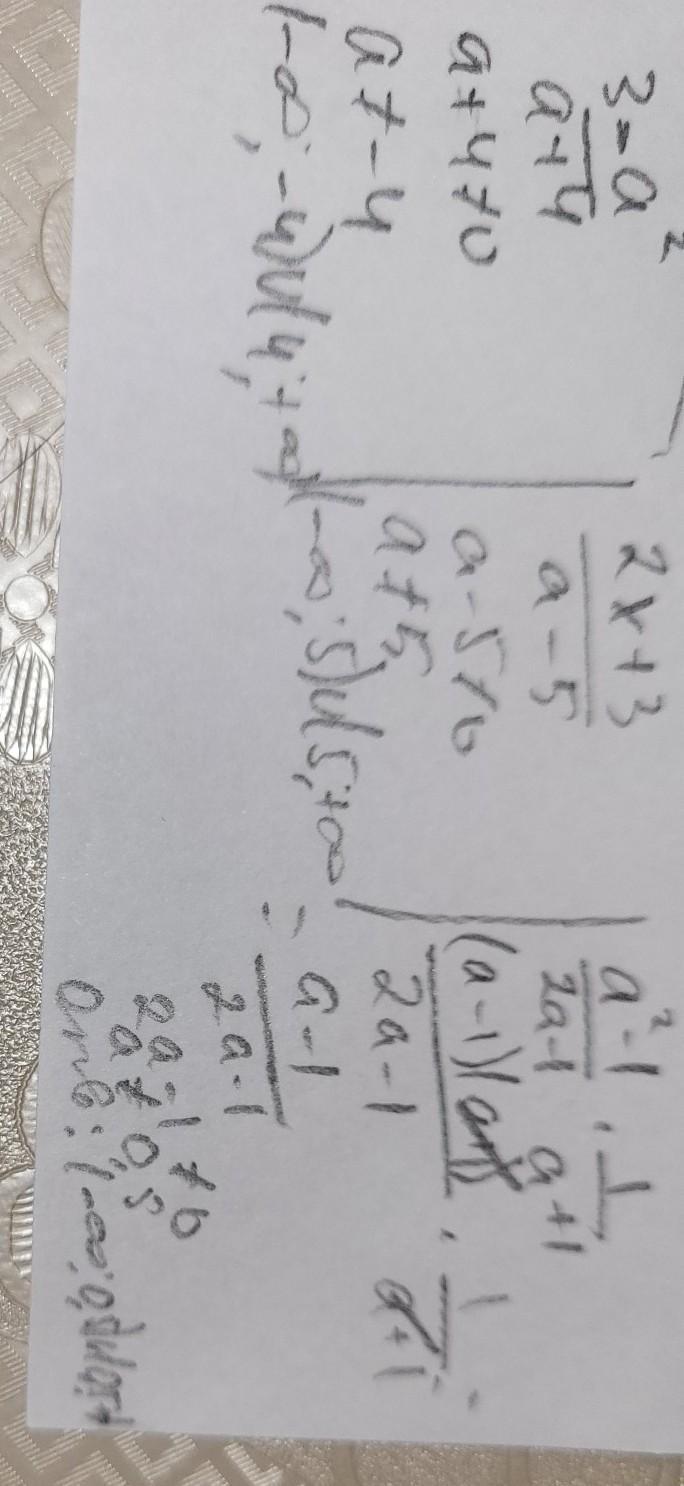 3-a²
a+4
a+4≠0
a≠-4
(-∞;-4)∪(4;+∞)
2x+3
a-5
a-5≠0
a≠5
(-∞;5)∪(5;+∞)
a²-1 · 1
2a-1 a+1
(a-1)(a+1) · 1 =
2a-1 a+1
= a-1
2a-1
2a-1≠0
a≠0,5